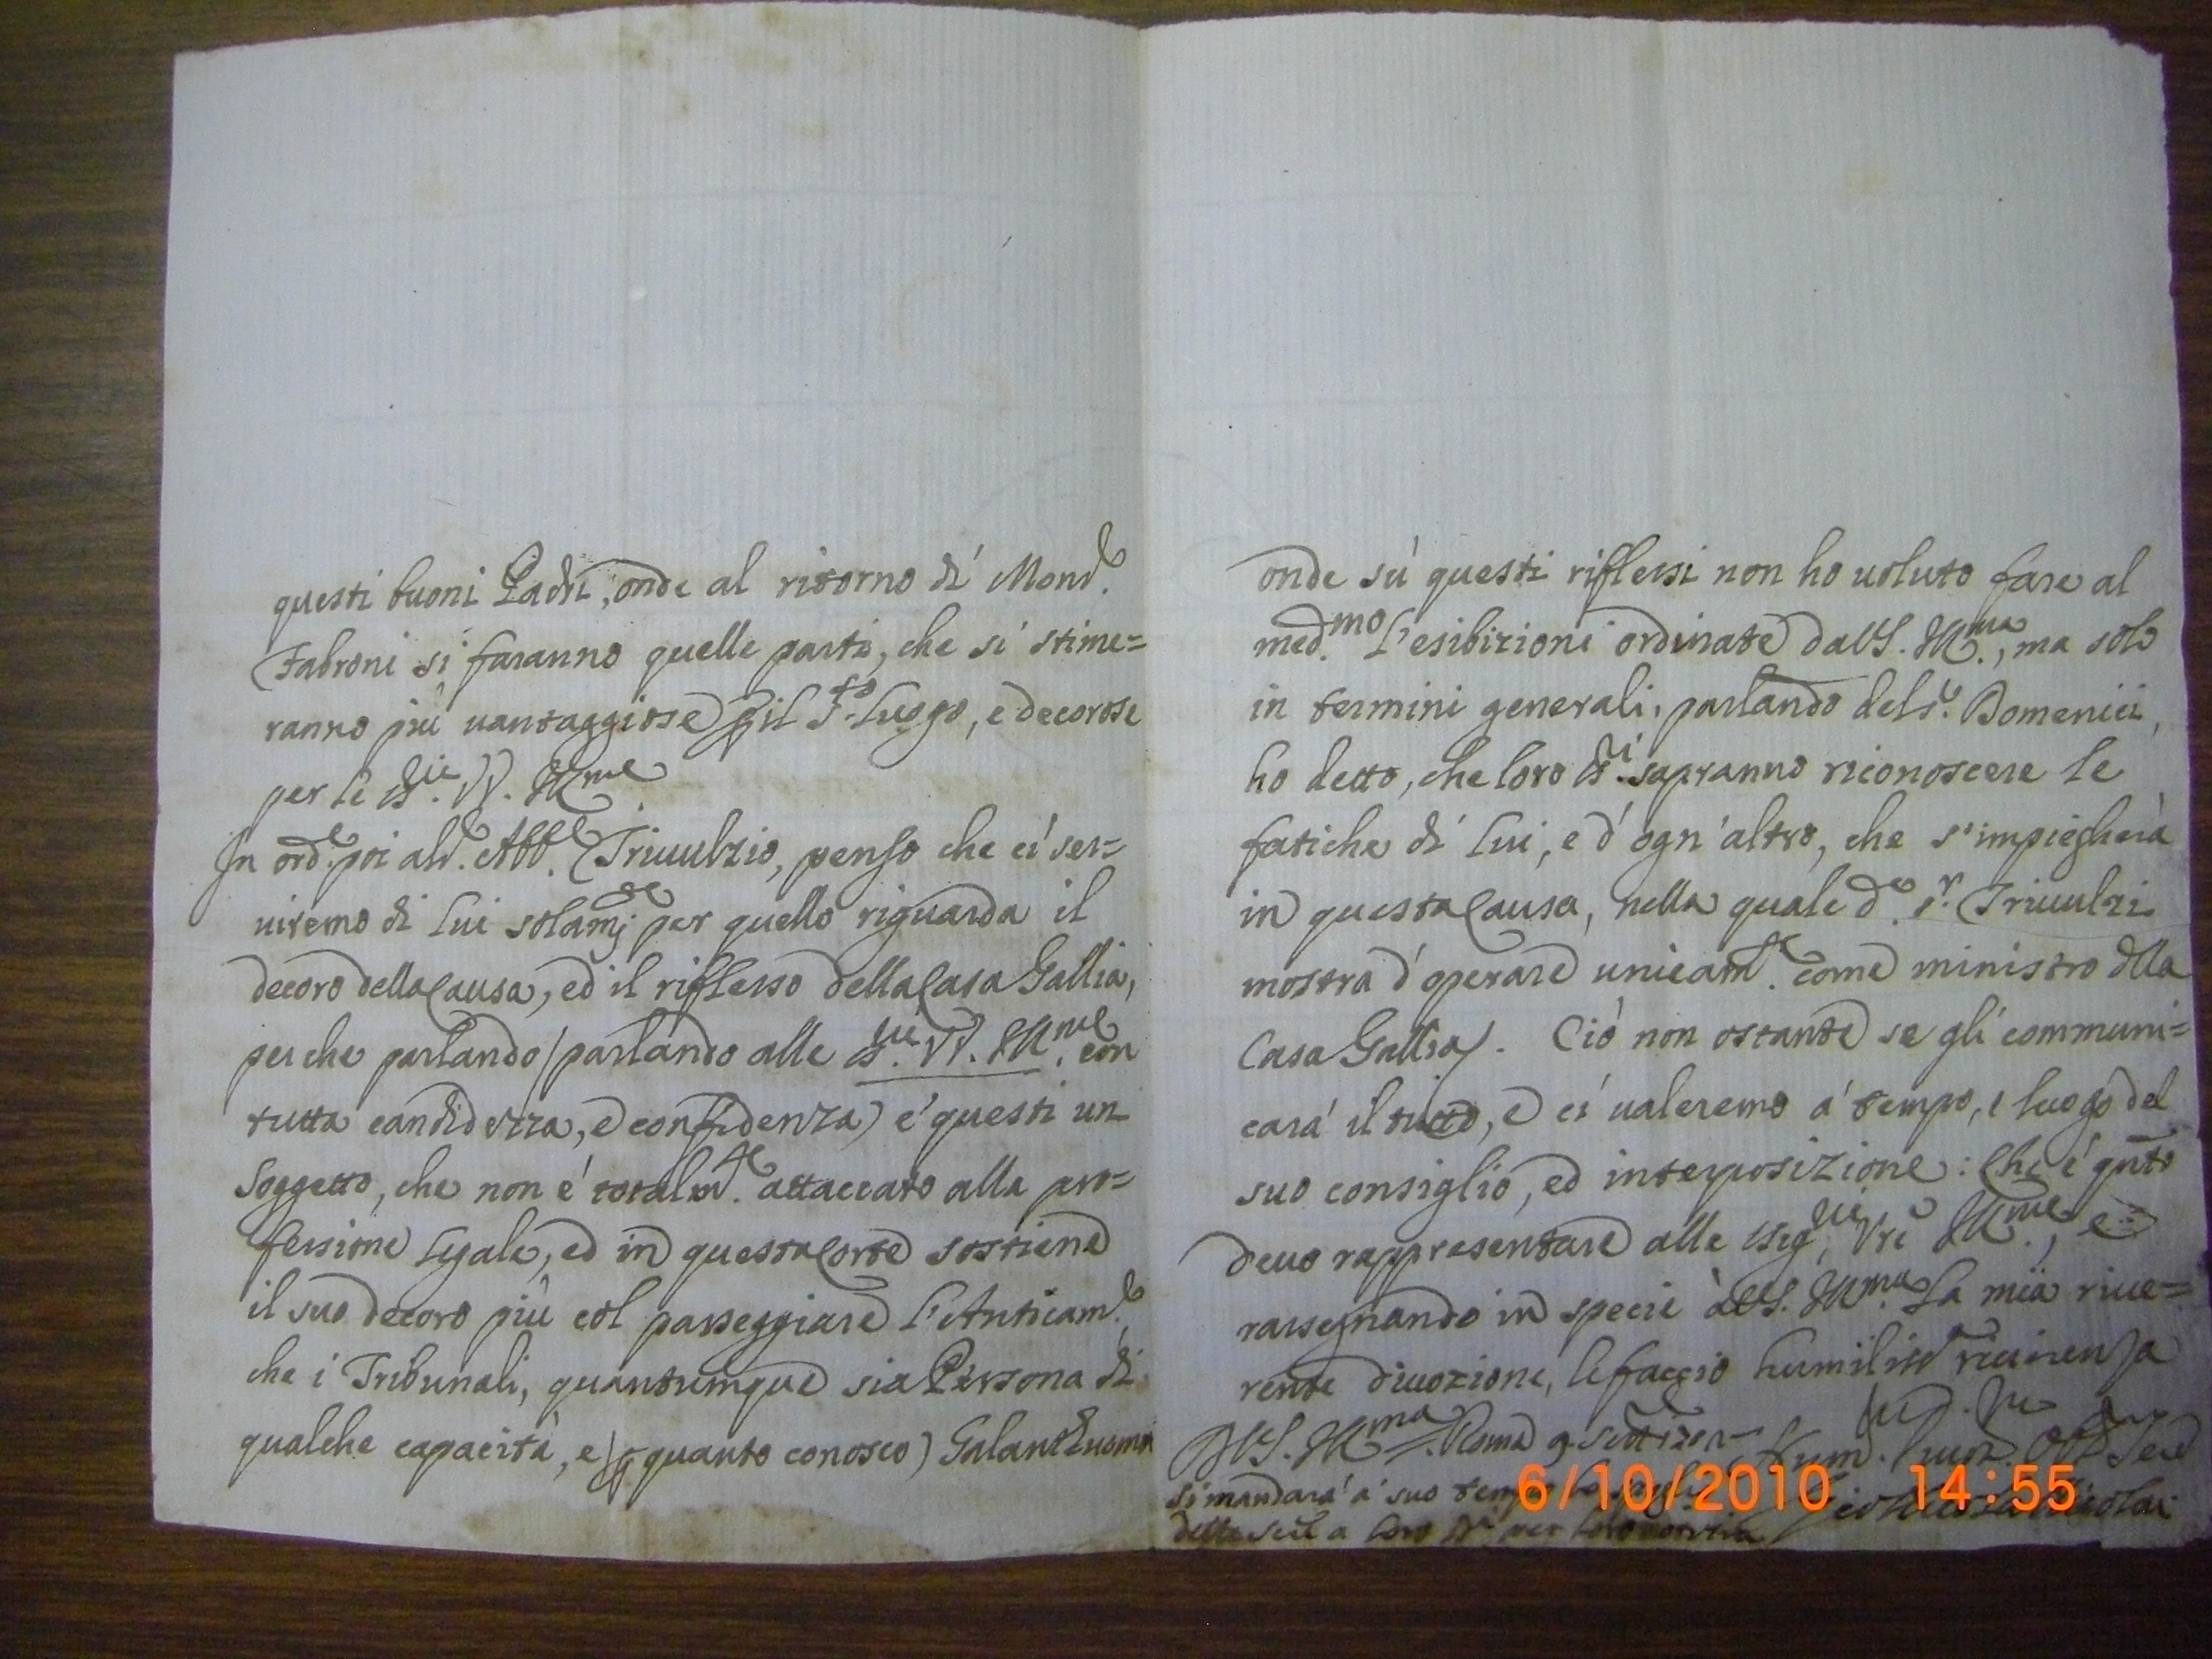 questi buoni Padri, onde al ritorno di Mond.e
Fabroni si faranno quelle parti, che si stime=
ranno più uantaggiose p il S.to Luogo, e decorose
per le Sig.rie VV. Ill.me
In ord.e poi al S.r Abb.e Triuulzio, penso che ci ser=
uiremo di Lui solam.te per quello riguarda il
decoro della Causa, ed il riflesso della Casa Gallia,
perche parlando (parlando alle S.rie VV. Ill.me, con
tutta candidezza, e confidenza) e' questi un
soggetto, che non e' totalm.te attaccato alla pro=
fessione Legale, ed in questa Corte sostiene
il suo decoro più col passeggiare l'Anticam.e,
che i Tribunali, quantunque sia Persona di
qualche capacità, e (p quanto conosco) Galanthuomo
onde sù questi riflessi non ho uoluto fare al
med.mo l'esibizioni ordinate da VS. Ill.ma, ma solo
in termini generali, parlando del S.r Domenici,
ho detto, che loro SS.ri sapranno riconoscere le
fatiche di Lui, e d'ogn'altro, che s'impiegherà
in questa Causa, nella quale d.o S.r Triuulzi
mostra d'operare unicam.te come ministro dlla
Casa Gallia. Ciò non ostante se gli communi=
cara' il tutto, e ci ualeremo a' tempo, e luogo del
suo consiglio, ed interposizione: Che e' qnto
deuo rappresentare alle Sig.rie Vre Ill.me, e
rassegnando in specie à VS. Ill.ma La mia riue=
rente diuozione, le faccio humiliss.a riuerenza
D VS. Ill.ma Roma 9 Settre
Hum. Obb. Ser.e
Si mandara' a' suo temp
delle a loro per loro
6/10/2010 14:55